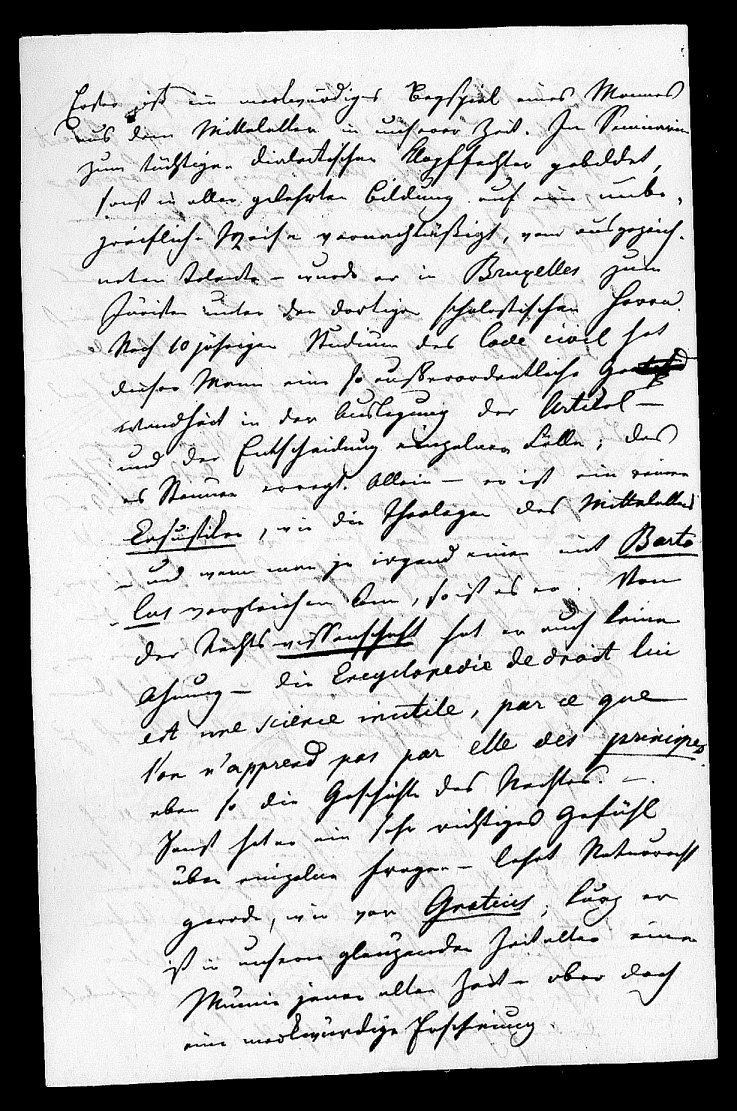 Erster ist ein merkwürdiges Beyspiel eines Mannes
aus dem Mittelalter in unserer Zeit. In Seminarien
zum tüchtigen dialectischen Klopffechter gebildet,
sonst in aller gelehrten Bildung auf eine unbe-
greifliche Weise vernachläßigt, von ausgezeich-
neten Talente – wurde er in Bruxelles zum
Juristen unter den dortigen scholastischen Herren.
Nach 10 jährigen Studium des Code civil hat
dieser Mann eine so außerordentliche Ge
wandheit in der Auslegung der Artikel –
und der Entscheidung einzelner Fälle, das
es Staunen erregt. Allein – er ist ein reiner
Casuistiker, wie die Theologen des Mittelalters
– und wenn man je irgend einen mit Barto
lus vergleichen kan, so ist es er. Von
der Rechtswissenschaft hat er auch keine
Ahnung – die Encyclopedie de droit lui
est une science inutile, par ce que
l'on n'apprend pas par elle des principes.
eben so die Geschichte des Rechtes. –
Sonst hat er ein sehr richtiges Gefühl
über einzelne Fragen – lehrt Naturrecht
gerade, wie vor Grotius, kurz er
ist in unserm glänzenden Zeitalter eine
Mumie jener alten Zeit – aber doch
eine merkwürdige Erscheinung.